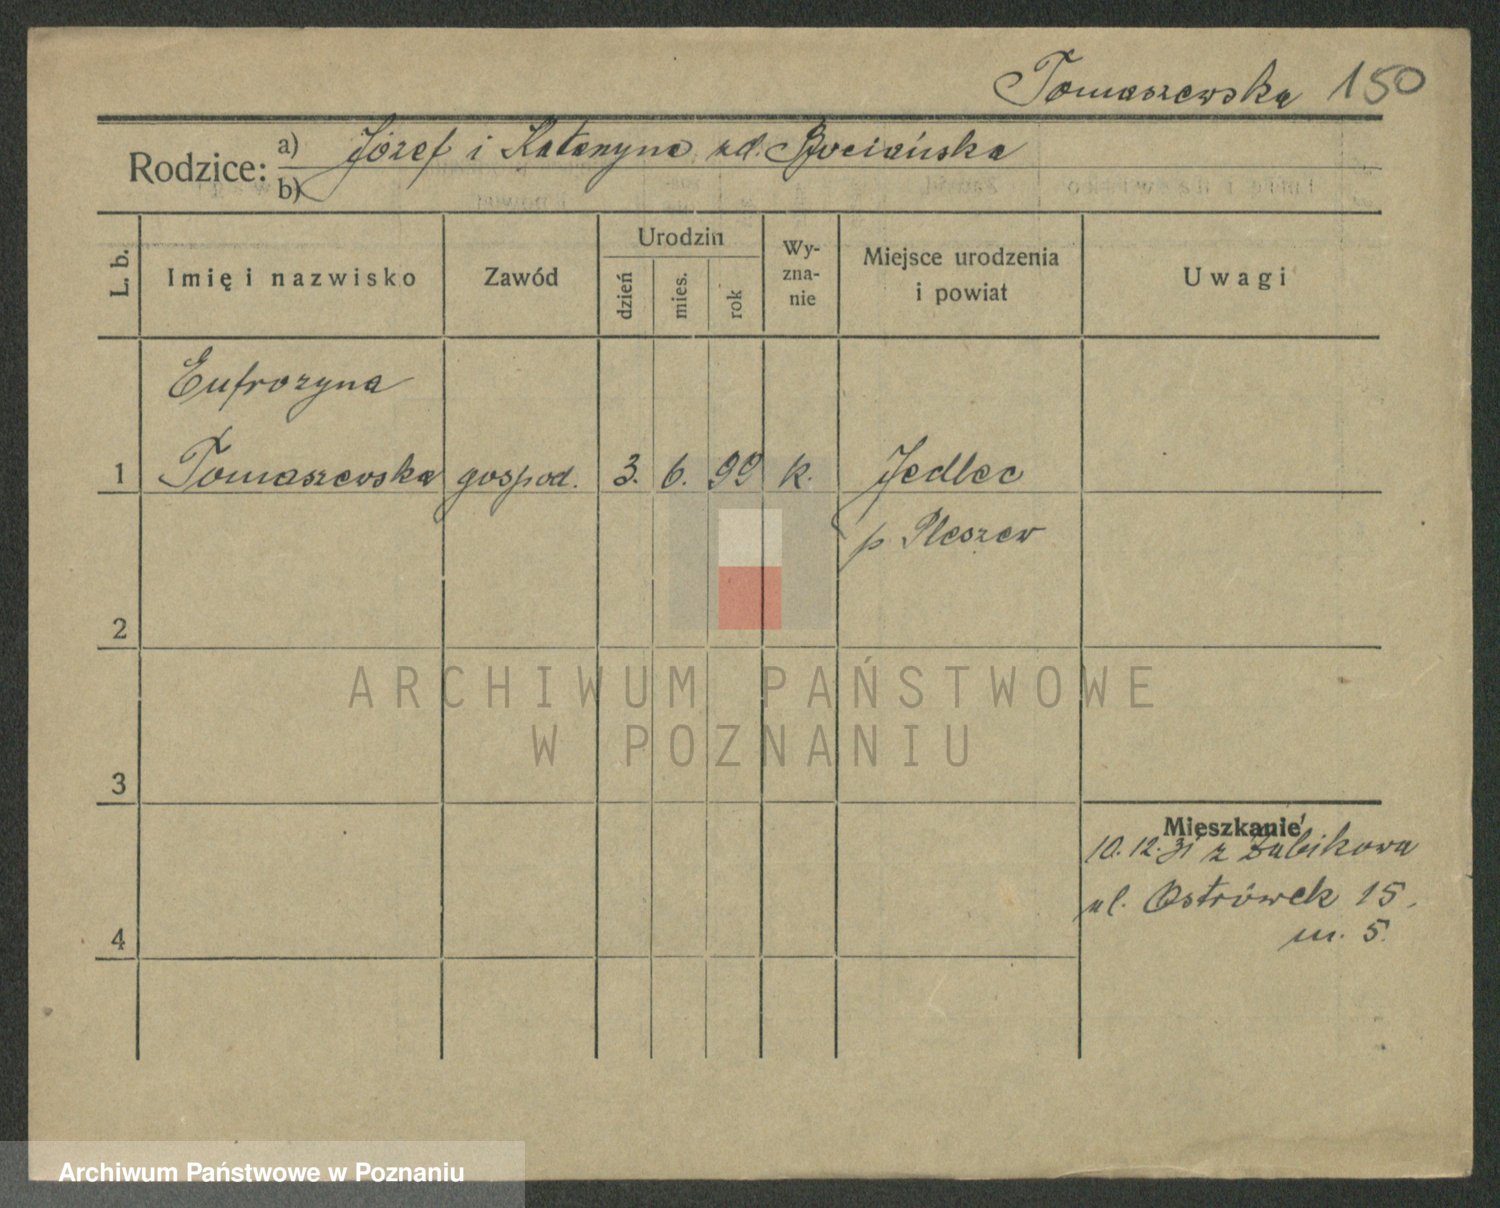 Tomaszewska 150
Rodzice: a) Józef i Katarzyna zd. Bociańska
b)
L. b. Imię i nazwisko Zawód Urodzin dzień mies. rok Wy-zna-nie Miejsce urodzenia i powiat Uwagi
Eufrozyna
1 Tomaszewska gospod. 3. 6. 99 k. Jedlec
p Pleszew
2
ARCHIWUM PAŃSTWOWE
W POZNANIU
3
Mieszkanie
10.12.31 z Żabikowa
4 ul. Ostrówek 15.
m. 5.
Archiwum Państwowe w Poznaniu